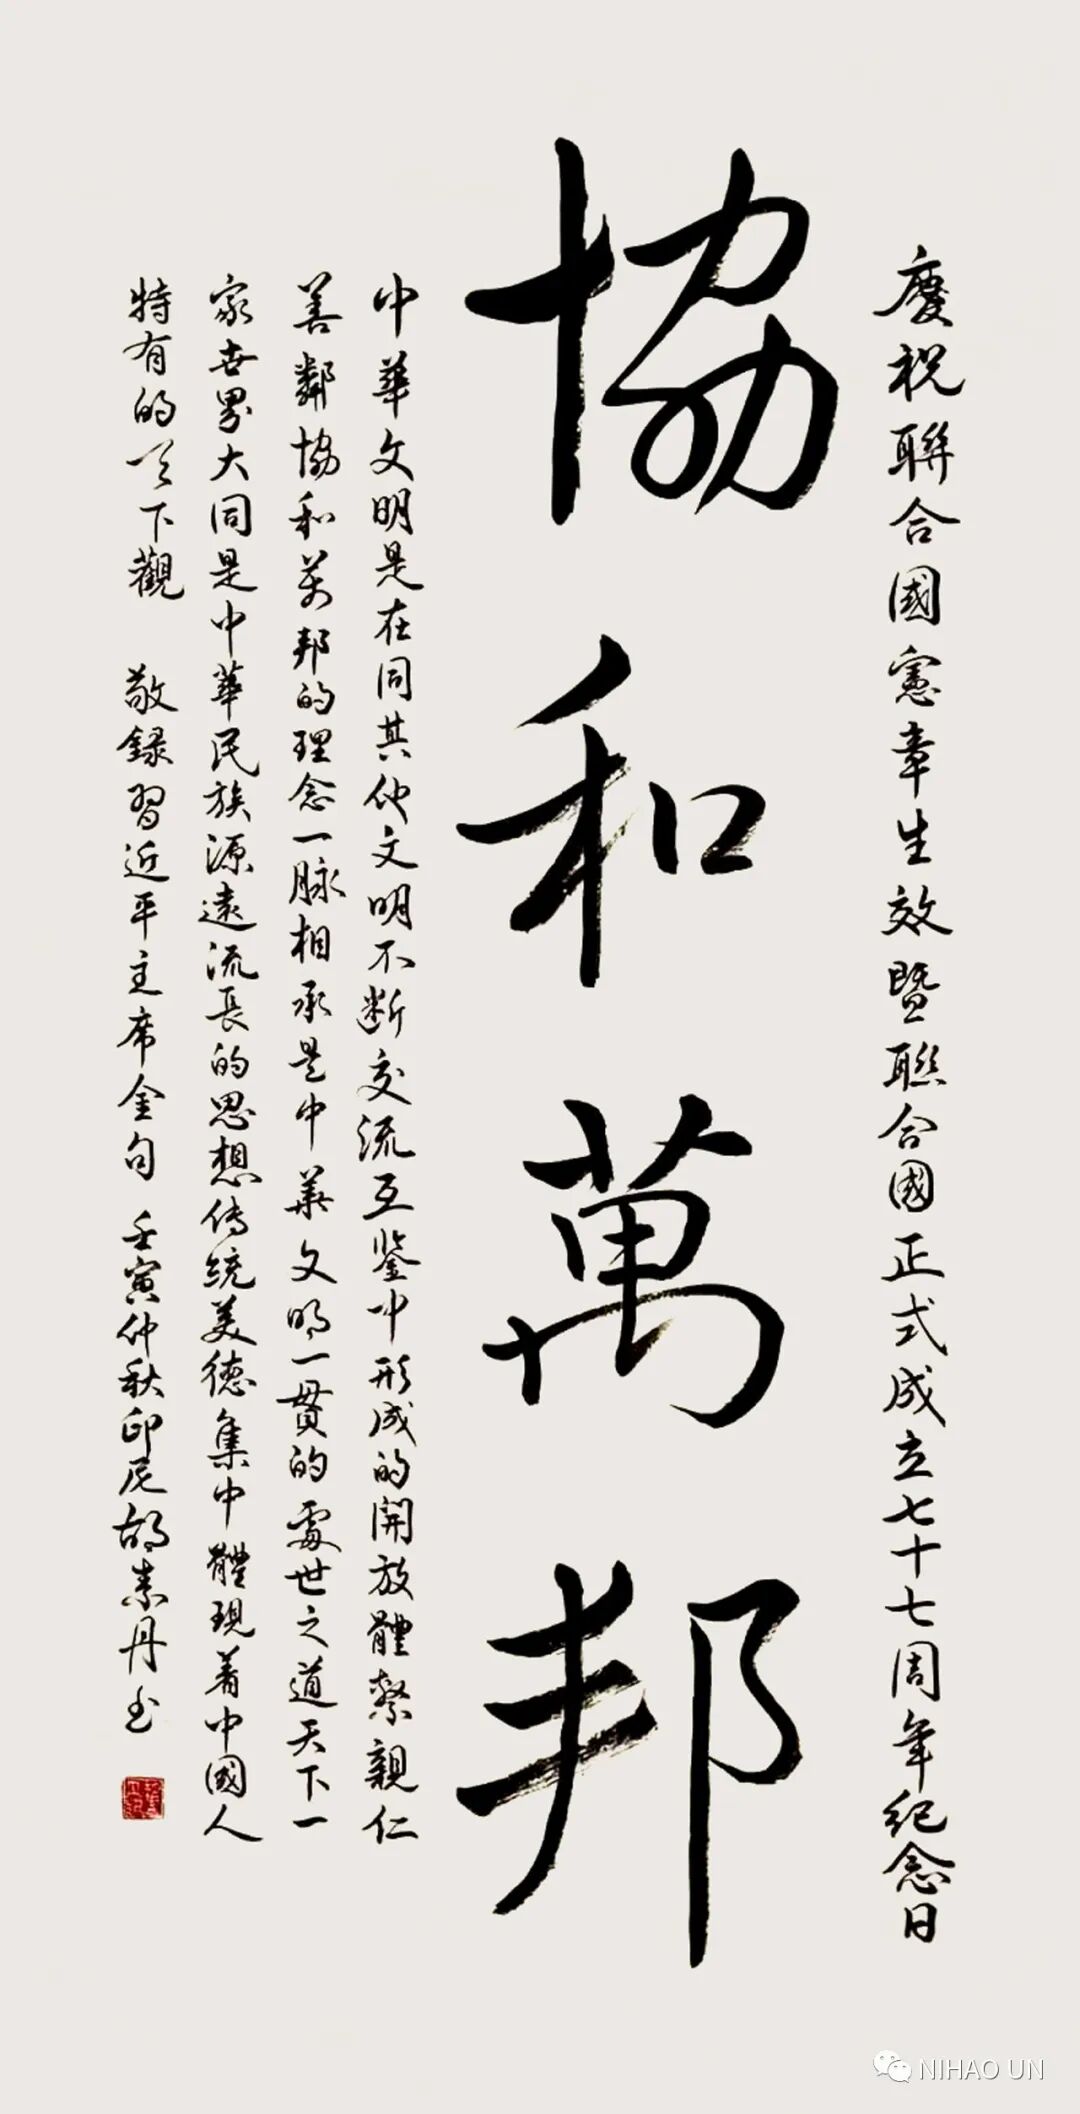 慶祝聯合國憲章生效暨聯合國正式成立七十七周年紀念日
協和萬邦
中華文明是在同其他文明不断交流互鉴中形成的開放體系親仁
善鄰協和萬邦的理念一脉相承是中華文明一貫的處世之道天下一
家世界大同是中華民族源遠流長的思想傳統美德集中體現着中國人
特有的天下觀 敬録習近平主席金句 壬寅仲秋印尼胡素丹书
NIHAO UN